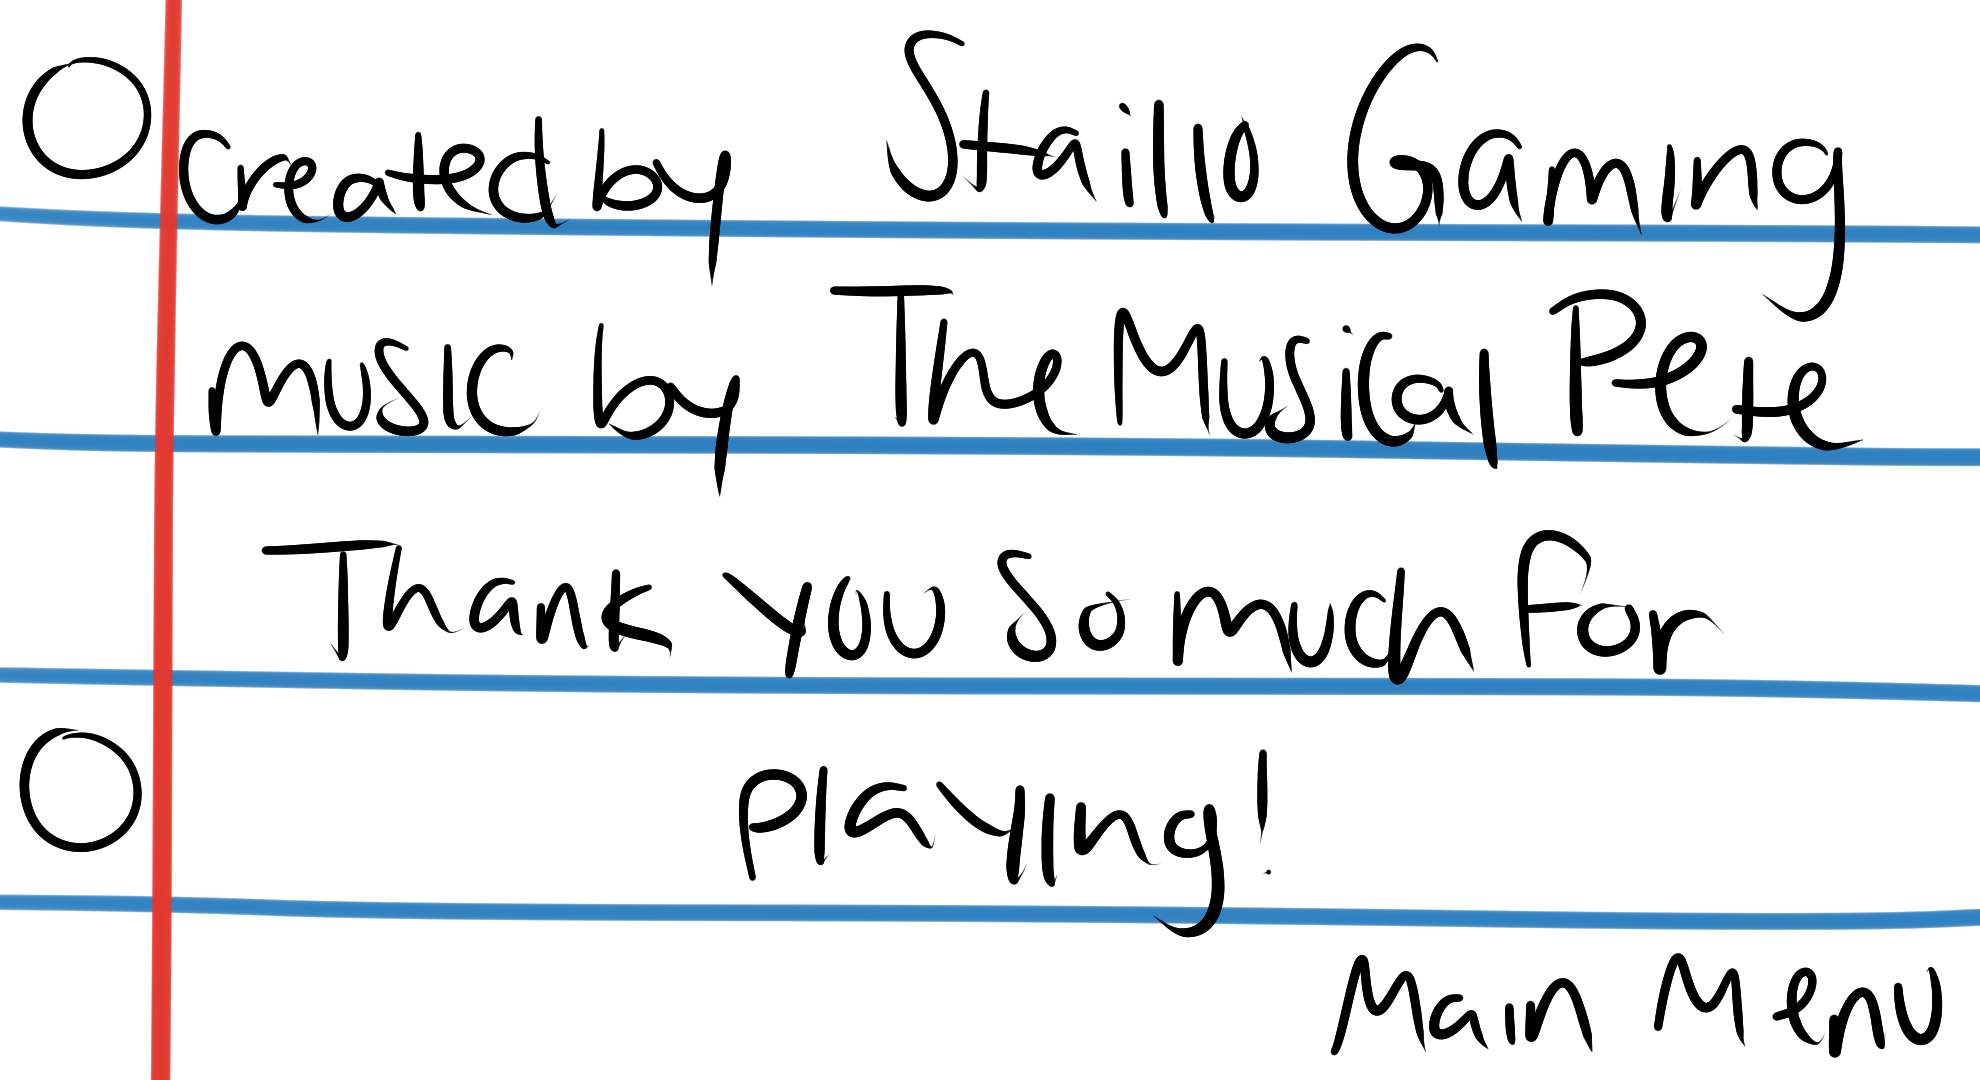 Created by Staillo Gaming
music by The Musical Pete
Thank you so much for
playing!
Main Menu